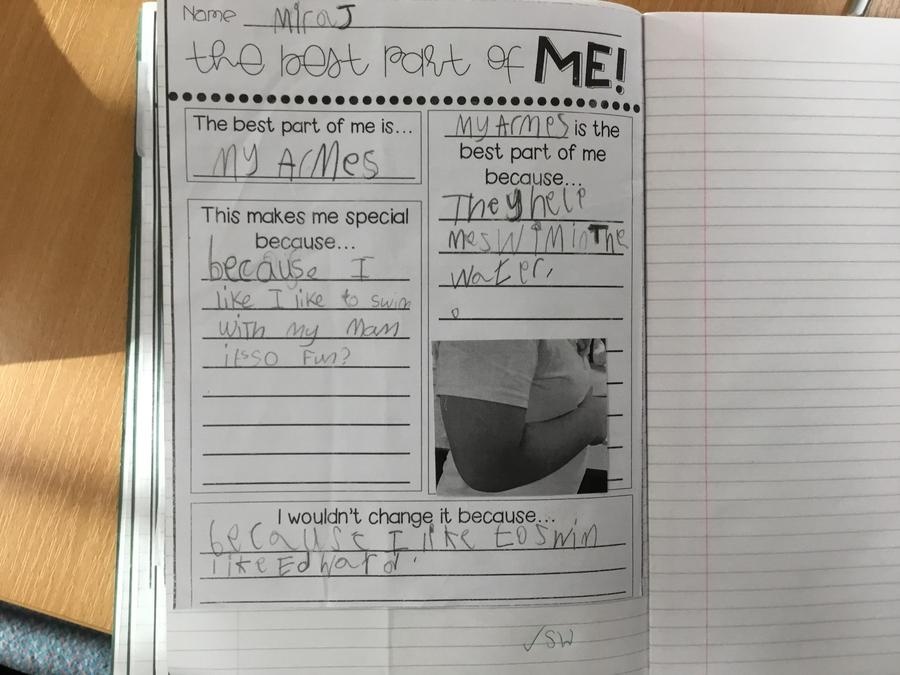 Name MiraJ
the best part of ME!
The best part of me is...
MY ArMes
This makes me special
because...
because I
like I like to swim
with my Mam
itsso Fun?
MY ArMes is the
best part of me
because...
They help
me sWiM in The
Water.
I wouldn't change it because...
because I like to swin
like Edward.
✓SW